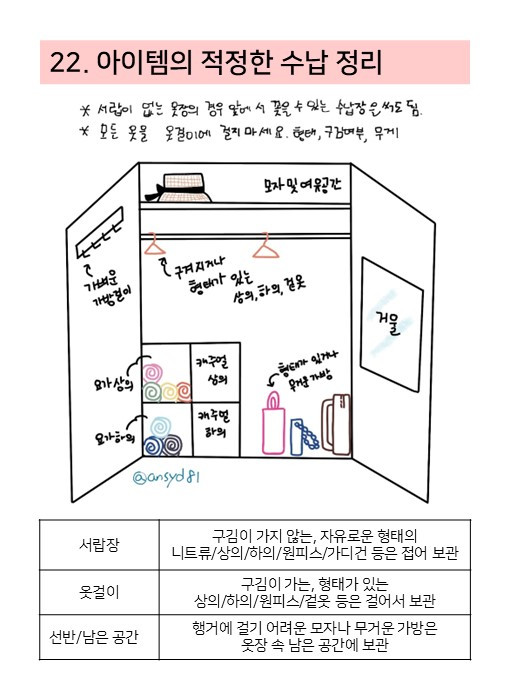 22. 아이템의 적정한 수납 정리
* 서랍이 없는 옷장의 경우 앞에서 꽂을 수 있는 수납장은 써도 됨.
* 모든 옷을 옷걸이에 걸지 마세요. 형태, 구김여부, 무게
모자 및 여유공간
가벼운
가방걸이
구겨지거나
형태가 있는
상의, 하의, 겉옷
거울
요가상의
캐주얼
상의
형태가 있거나
무거운 가방
요가하의
캐주얼
하의
@ansyd81
서랍장
구김이 가지 않는, 자유로운 형태의
니트류/상의/하의/원피스/가디건 등은 접어 보관
옷걸이
구김이 가는, 형태가 있는
상의/하의/원피스/겉옷 등은 걸어서 보관
선반/남은 공간
행거에 걸기 어려운 모자나 무거운 가방은
옷장 속 남은 공간에 보관